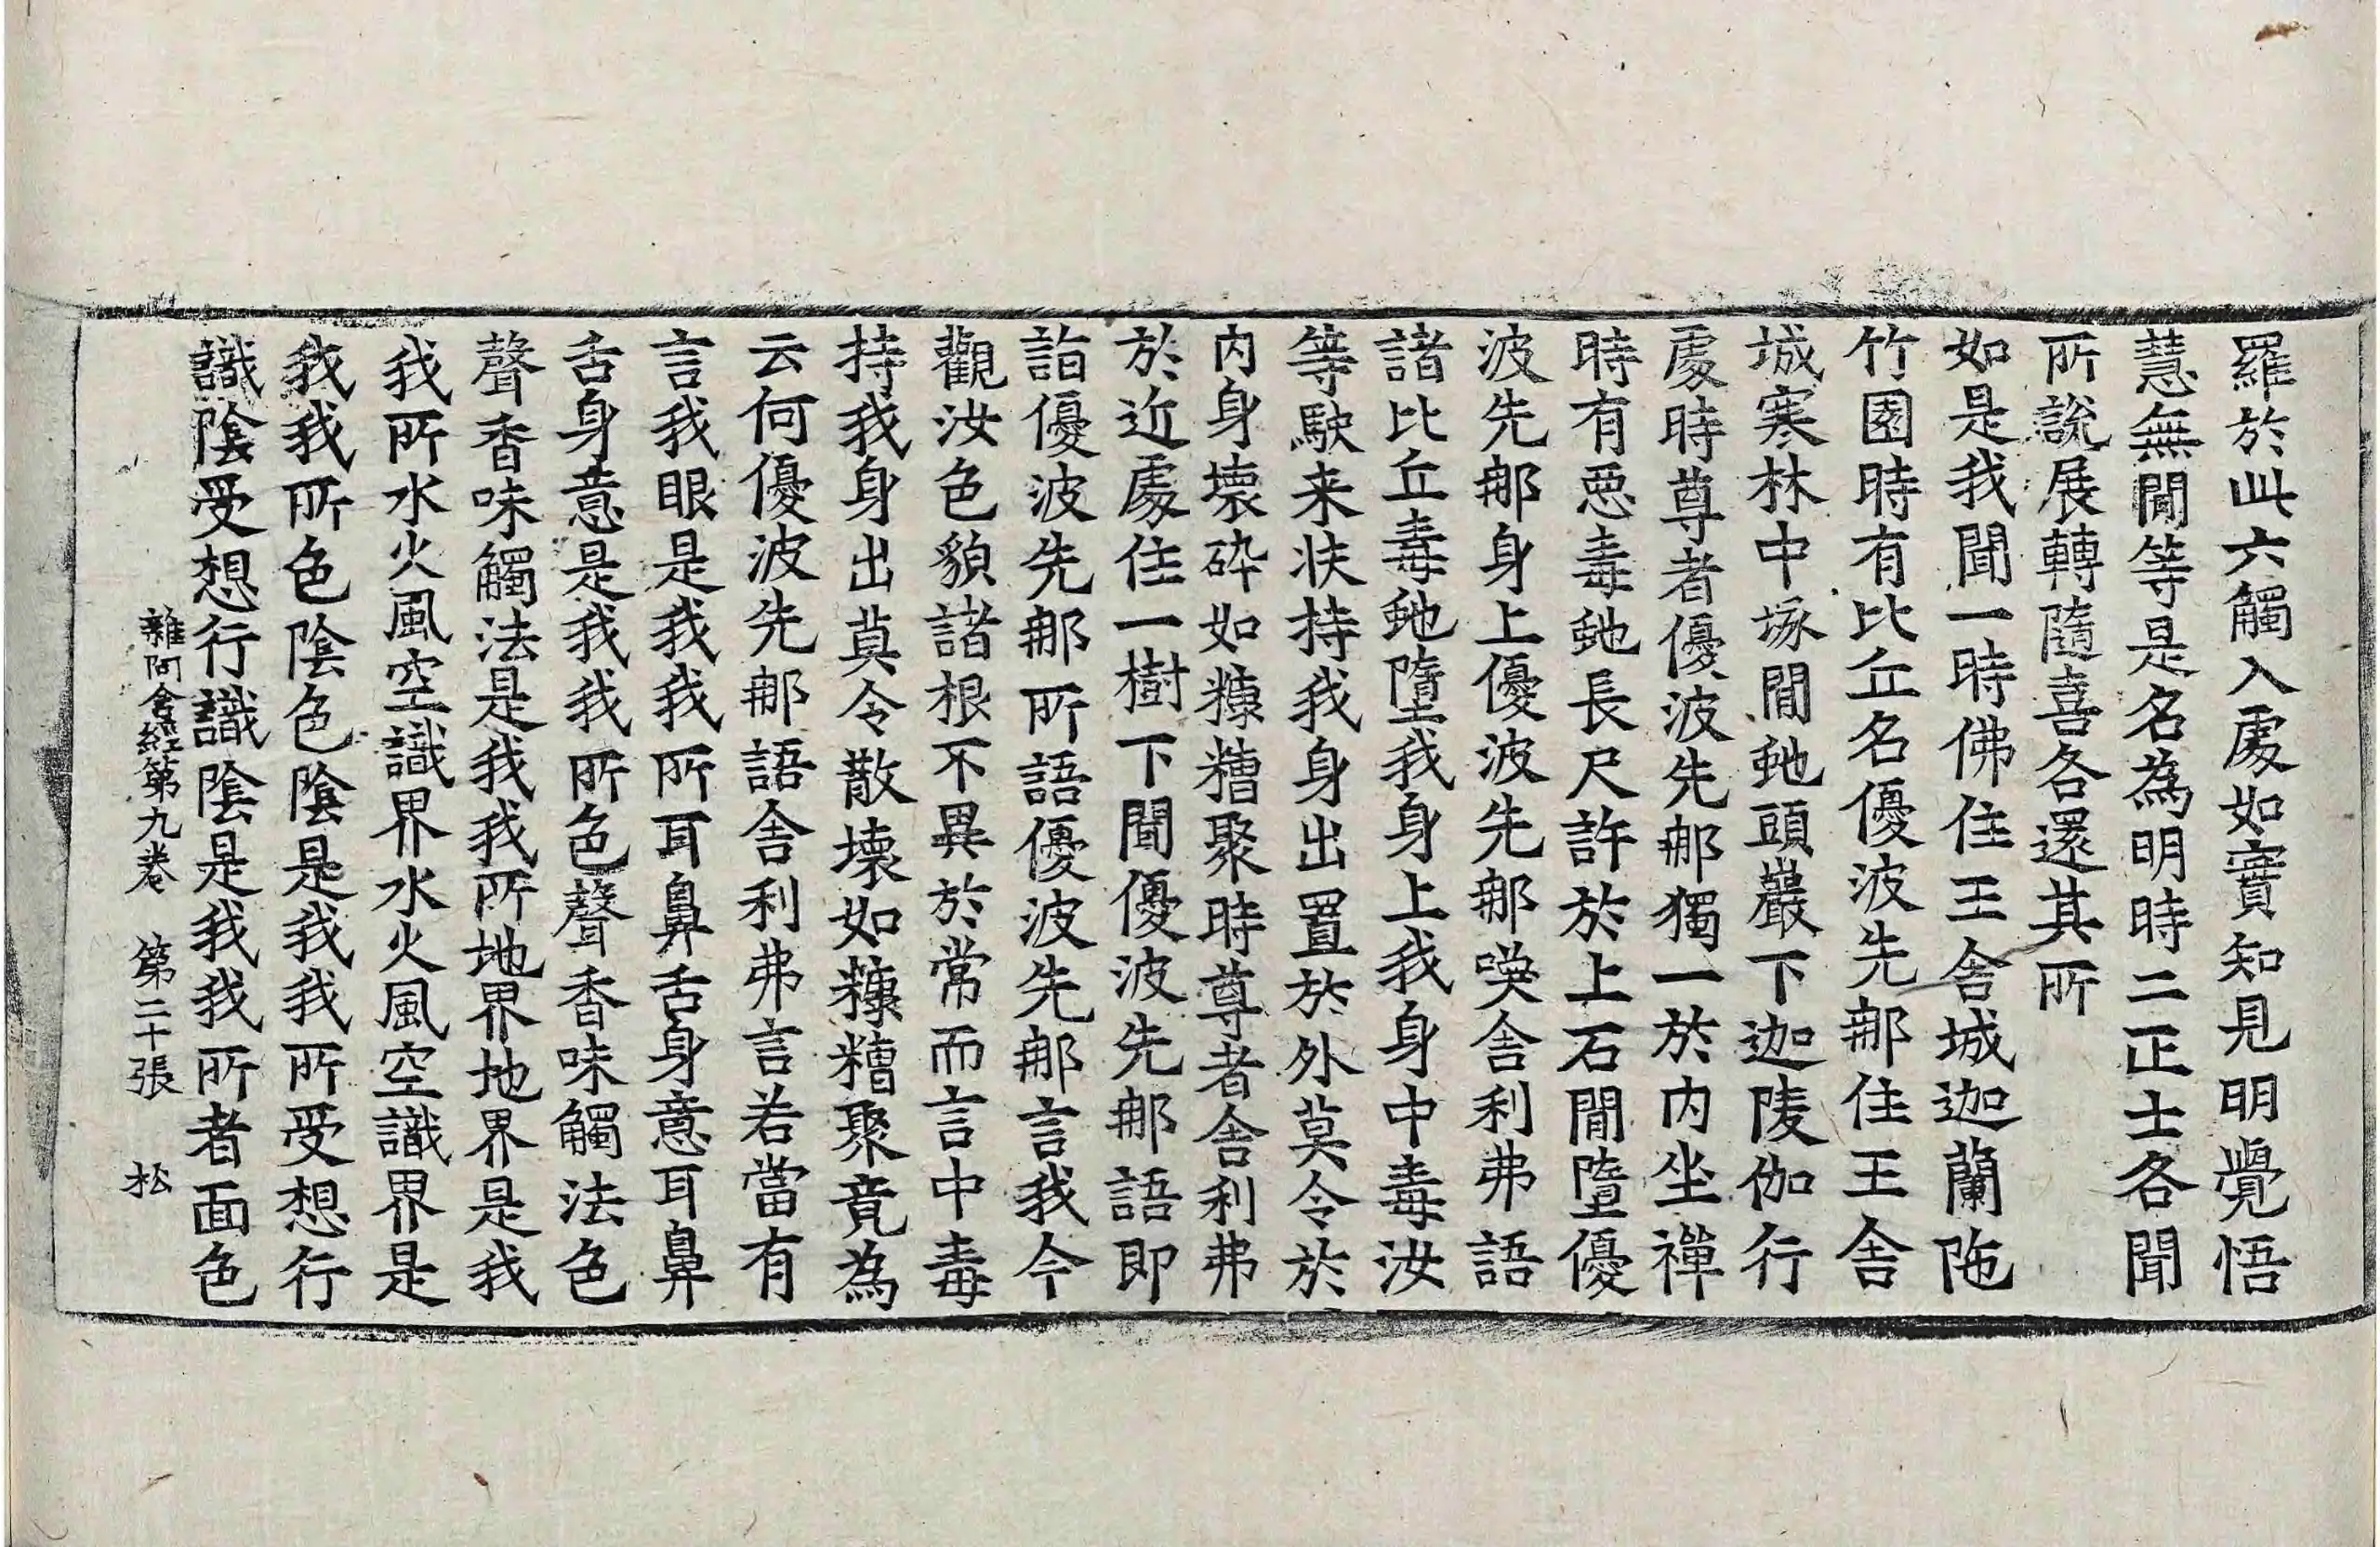 羅於此六觸入處如實知見明覺悟
慧無閒等是名為明時二正士各聞
所說展轉隨喜各還其所
如是我聞一時佛住王舍城迦蘭陁
竹園時有比丘名優波先那住王舍
城寒林中塚閒虵頭巖下迦陵伽行
處時尊者優波先那獨一於內坐禪
時有惡毒虵長尺許於上石閒墮優
波先那身上優波先那喚舍利弗語
諸比丘毒虵墮我身上我身中毒汝
等駛来扶持我身出置於外莫令於
內身壞碎如糠糟聚時尊者舍利弗
於近處住一樹下聞優波先那語即
詣優波先那所語優波先那言我今
觀汝色貌諸根不異於常而言中毒
持我身出莫令散壞如糠糟聚竟為
云何優波先那語舍利弗言若當有
言我眼是我我所耳鼻舌身意耳鼻
舌身意是我我所色聲香味觸法色
聲香味觸法是我我所地界地界是我
我所水火風空識界水火風空識界是
我我所色陰色陰是我我所受想行
識陰受想行識陰是我我所者面色
雜阿含經第九卷 第二十張 松